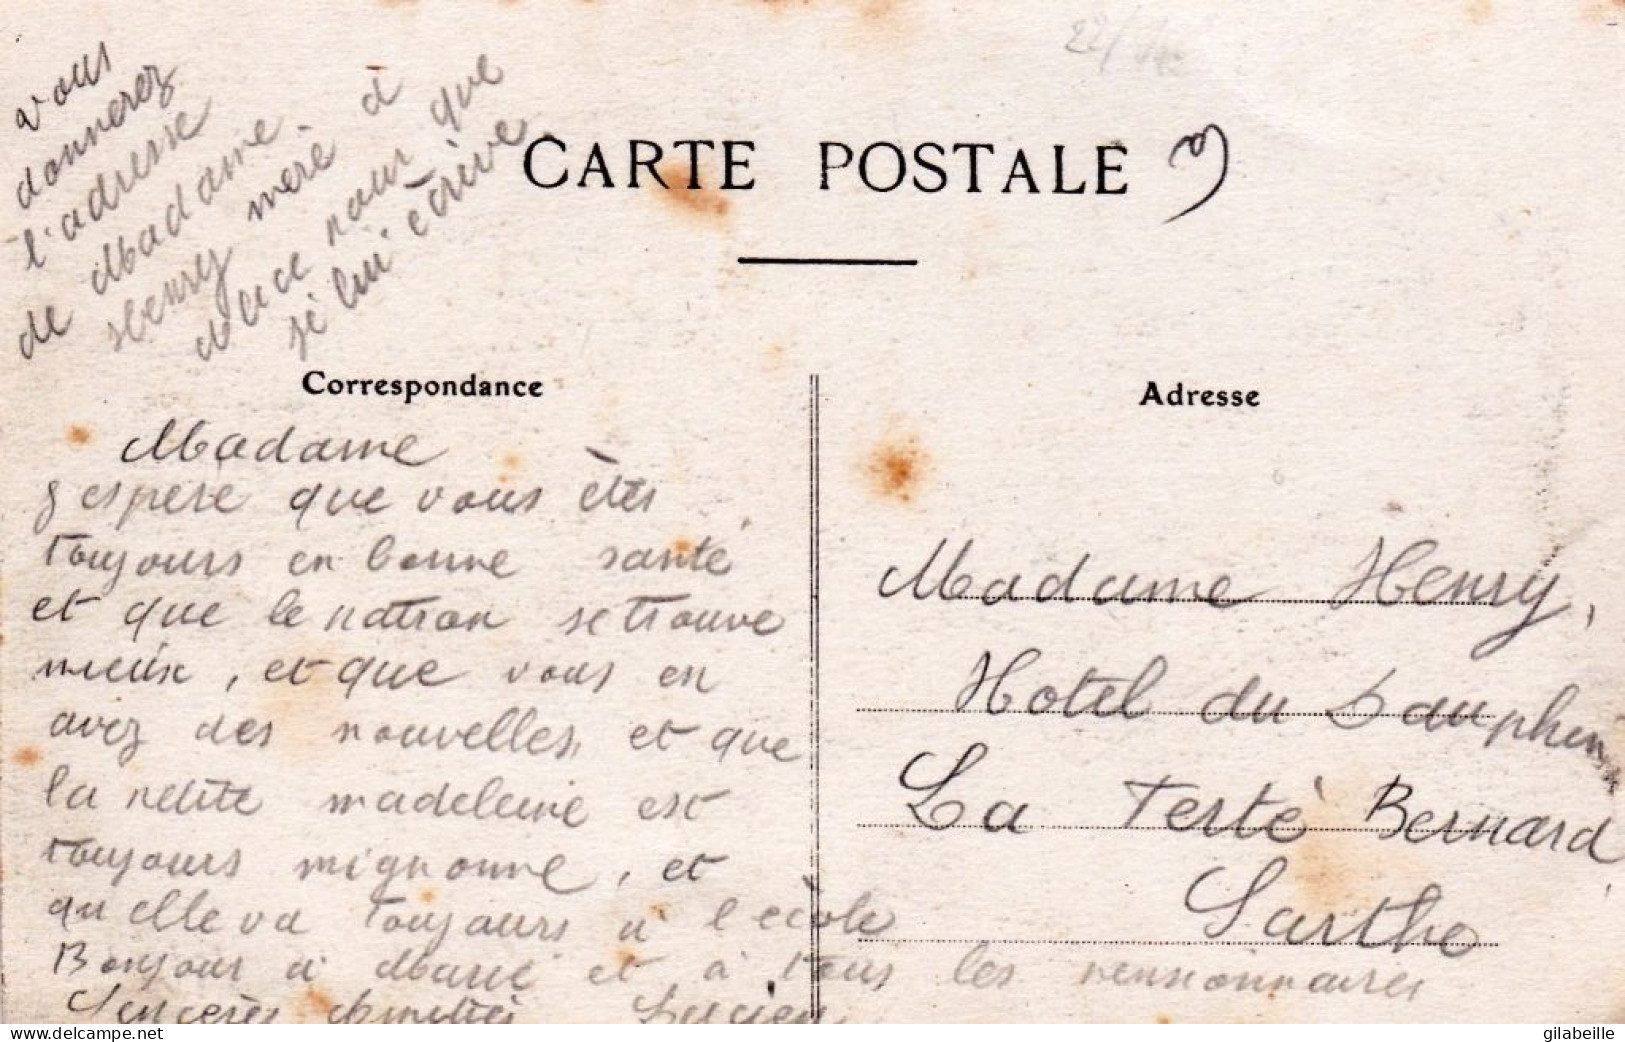 vous
donnerez
l'adresse
de Madame
Henry mère à
douce pour que
je lui écrive
CARTE POSTALE
Correspondance
Adresse
Madame
J espere que vous êtes
toujours en bonne santé
et que le patron se trouve
mieux, et que vous en
avez des nouvelles, et que
la petite madeleine est
toujours mignonne, et
qu elle va toujours à l'école
Bonjour à Marie et à tous les pensionnaires
Sincères Amitiés Lucien
Madame Henry,
Hotel du Dauphin
La Ferté Bernard
Sarthe
delcampe.net
gilabeille